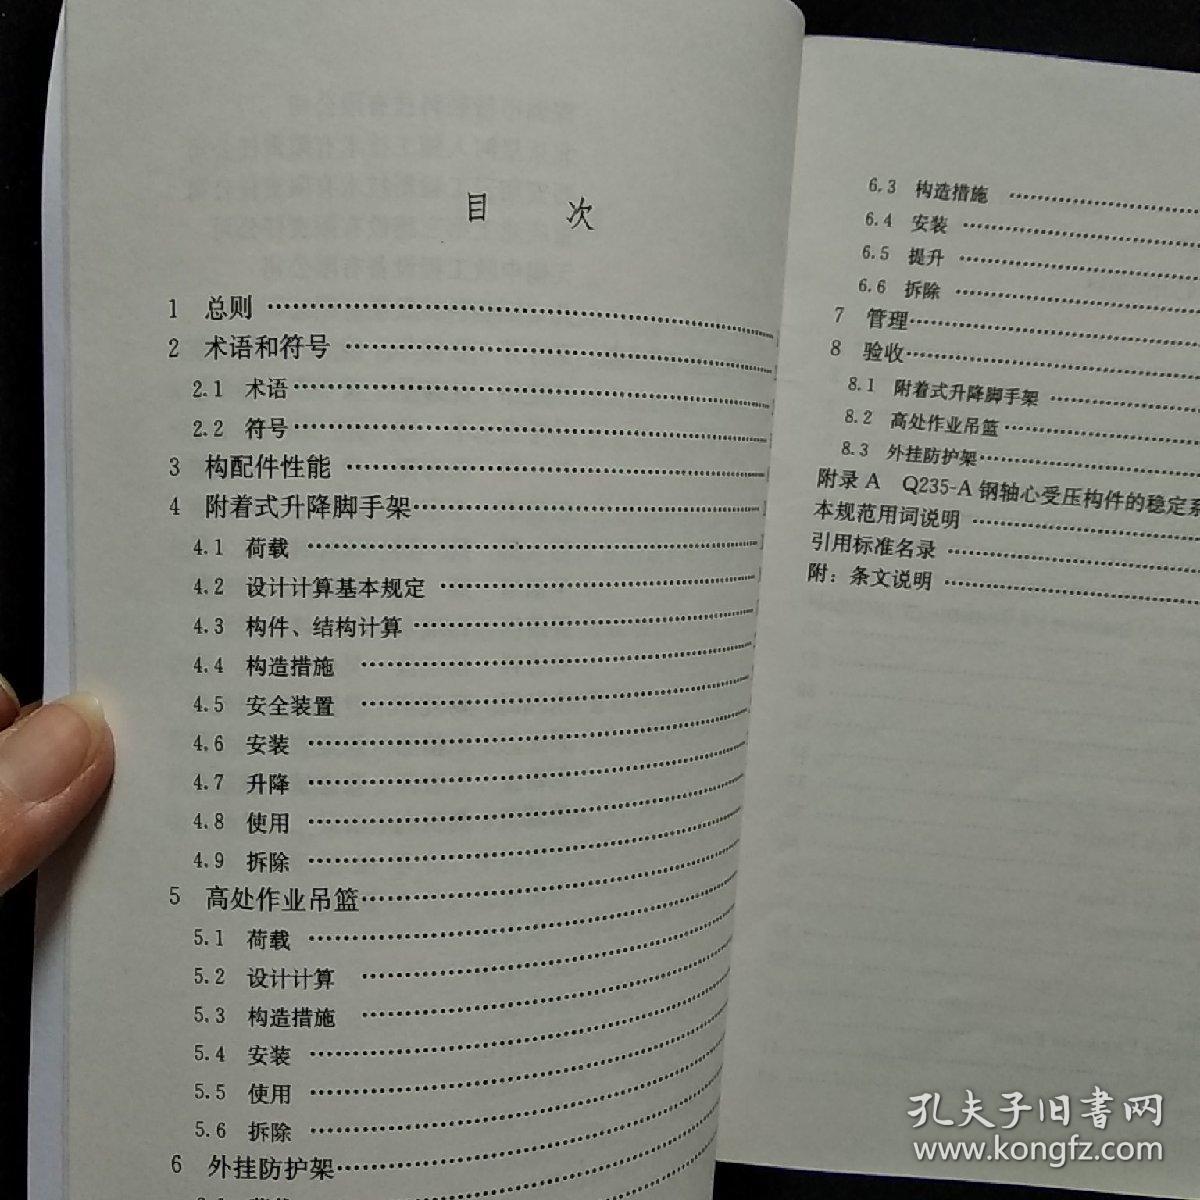 目 次
1 总则
2 术语和符号
2.1 术语
2.2 符号
3 构配件性能
4 附着式升降脚手架
4.1 荷载
4.2 设计计算基本规定
4.3 构件、结构计算
4.4 构造措施
4.5 安全装置
4.6 安装
4.7 升降
4.8 使用
4.9 拆除
5 高处作业吊篮
5.1 荷载
5.2 设计计算
5.3 构造措施
5.4 安装
5.5 使用
5.6 拆除
6 外挂防护架
6.3 构造措施
6.4 安装
6.5 提升
6.6 拆除
7 管理
8 验收
8.1 附着式升降脚手架
8.2 高处作业吊篮
8.3 外挂防护架
附录A Q235-A钢轴心受压构件的稳定系
本规范用词说明
引用标准名录
附：条文说明
孔夫子旧书网
www.kongfz.com